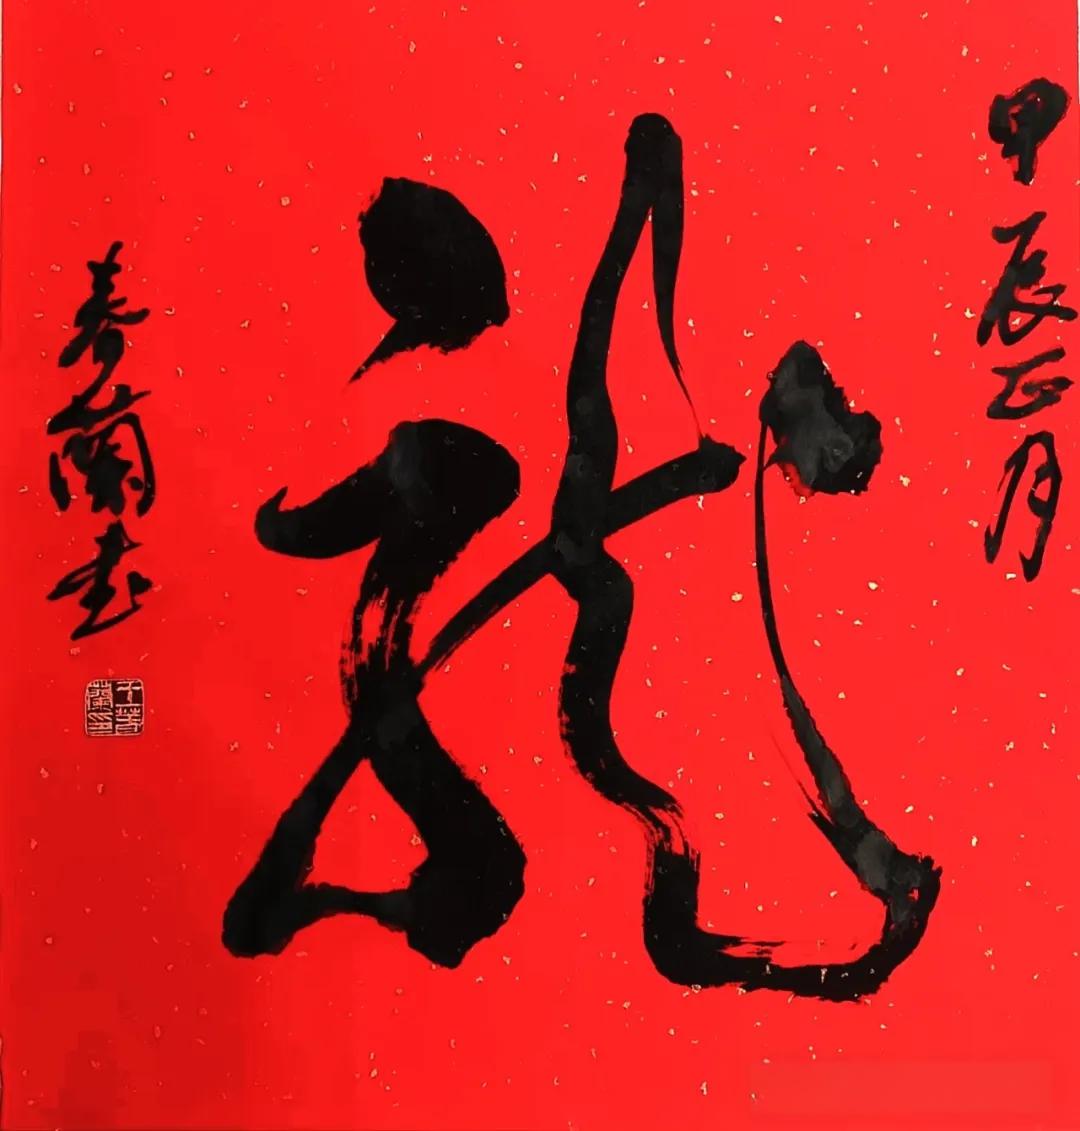 甲辰正月
龍
春蘭書